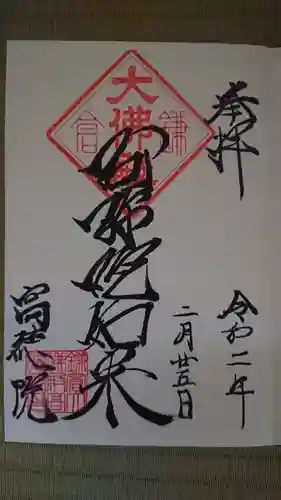 奉拝
令和二年
二月廿五日
大佛殿
鎌倉
阿弥陀如来
高徳院